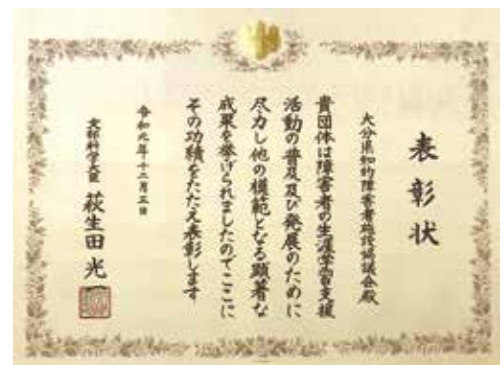 表彰状
大分県知的障害者施設協議会殿
貴団体は障害者の生涯学習支援
活動の普及及び発展のために
尽力し他の模範となる顕著な
成果を挙げられましたのでここに
その功績をたたえ表彰します
令和元年十二月三日
文部科学大臣 萩生田光一